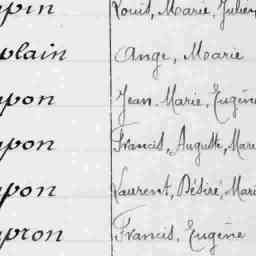 pin Louis, Marie, Julien
plain Ange, Marie
pon Jean Marie, Eugène
pon Francis, Auguste, Mari
pon Laurent, Désiré, Mari
pron Francis, Eugène